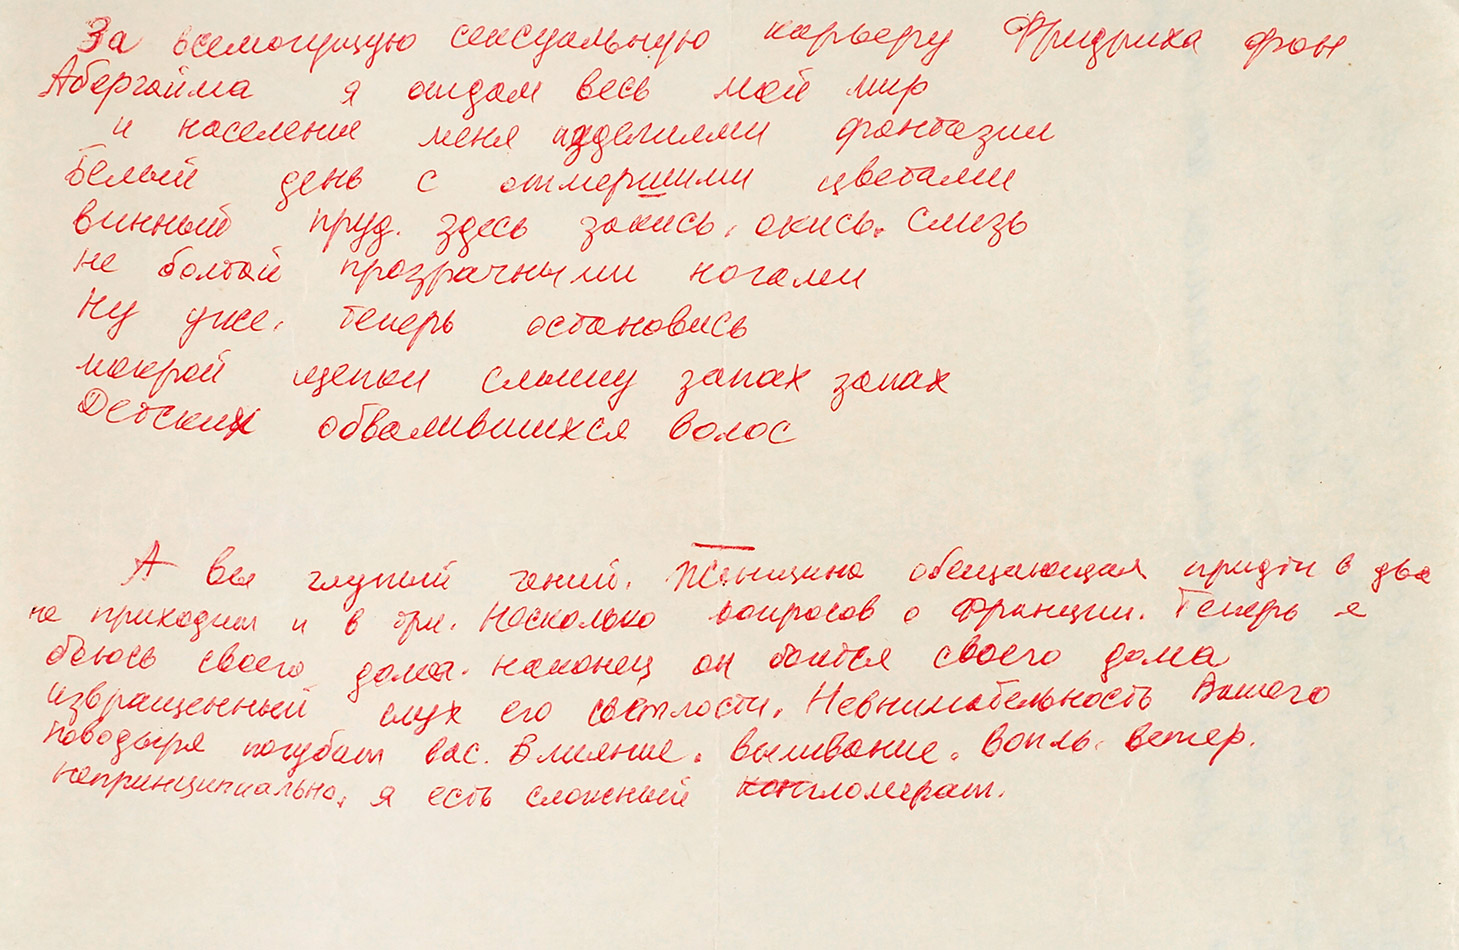 За всемогущую сексуальную карьеру Фридриха фон
Абергайма я отдам весь мой мир
и население меня изделиями фантазии
Белый день с отмершими цветами
винный пруд. здесь закись, окись. слизь
не болтай прозрачными ногами
Ну уже, теперь остановись
мокрой щепки слышу запах запах
Детских обвалившихся волос
А вы глупый гений. Женщина обещающая придти в два
не приходит и в три. Несколько вопросов о Франции. Теперь я
боюсь своего дома. наконец он боится своего дома
извращенный слух его светлости. Невнимательность Вашего
поводыря погубит вас. Влияние. выливание. вопль. ветер.
непринципиально, я есть сложный конгломерат.